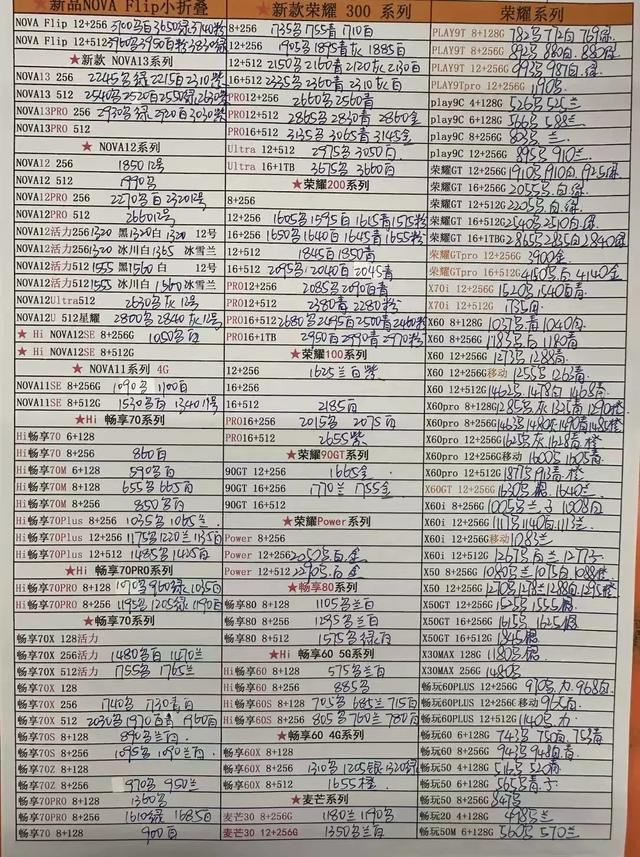 ★新品NOVA Flip小折叠
NOVA Flip 12+256 3700多白 3650绿 3740粉
NOVA Flip 12+512 3960多 3950白粉 3830绿
★ 新款 NOVA13系列
NOVA13 256 2245多绿 2215白 2310紫
NOVA13 512 2540多 2520白 2550绿 2630紫
NOVA13PRO 256 2930多绿 2920白 3030紫
NOVA13PRO 512
★ NOVA12系列
NOVA12 256 1850 12号
NOVA12 512 1990多
NOVA12PRO 256 2270多白 2320 12号
NOVA12PRO 512 2660 12号
NOVA12活力256 1320 黑 1320白 1320 12号
NOVA12活力256 1320 冰川白 1365 冰雪兰
NOVA12活力512 1555 黑 1560白 12号
NOVA12活力512 1555 冰川白 1560 冰雪兰
NOVA12Ultra512 2630多灰 12号
NOVA12U 512星耀 2800多 2840灰 12号
★ Hi NOVA12SE 8+256G 1050多白
★ Hi NOVA12SE 8+512G
★ NOVA11系列 4G
NOVA11SE 8+256G 1090多 1100白
NOVA11SE 8+512G 1530多白 1340 11号
★Hi 畅享70系列
Hi畅享70 6+128
Hi畅享70 8+256 860白
Hi畅享70M 6+128 590多白
Hi畅享70M 8+128 655多 665白
Hi畅享70M 8+256 850多白
Hi畅享70Plus 8+256 1035多 1065兰
Hi畅享70Plus 12+256 1175多 1220兰 1135白
Hi畅享70Plus 12+512 1485多 1425白
★Hi 畅享70PRO系列
Hi畅享70PRO 8+128 1070多 960绿 1035白
Hi畅享70PRO 8+256 1195多 1205绿 1190白
★畅享70系列
畅享70X 128活力
畅享70X 256活力 1480多白 1470兰
畅享70X 512活力 1755多 1765兰
畅享70X 128
畅享70X 256 1740多 1730青白
畅享70X 512 2030多 1970白青 1960白
畅享70S 8+128 890多兰白
畅享70S 8+256 1095多 1090兰白
畅享70Z 8+128
畅享70Z 8+256 970多 950兰
畅享70PRO 8+128 1360多
畅享70PRO 8+256 1610绿 1685白
畅享70 8+128 900白
★新款荣耀 300 系列
8+256 1735多 1755青 1710白
12+256 1905多 1895青灰 1885白
12+512 2150多 2160青 2120灰 2130白
16+512 2335多 2360青 2315白
PRO12+256 2660多 2560青
PRO12+512 2865多 2830青 2860金
PRO16+512 3135多 3065青 3145金
Ultra 12+512 2975多 3050白
Ultra 16+1TB 3675多 3660白
★荣耀200系列
8+256
12+256 1605多 1595白 1615青 1575粉
16+256 1650多 1640白 1645青 1655粉
12+512 1845白 1850青
16+512 2095多 2040白 2045青
PRO12+256 2085多 2090白青
PRO12+512 2380青 2280粉
PRO16+512 2680多 2495白 2500青 2460粉
PRO16+1TB 2950白 2990青 2970粉
★荣耀100系列
12+256 1625兰白紫
16+256
16+512 2185白
PRO16+256 2015多 2075白
PRO16+512 2655紫
★荣耀90GT系列
90GT 12+256 1665金
90GT 16+256 1770兰 1755金
90GT 16+512
★荣耀Power系列
Power 8+256
Power 12+256 2050多白金
Power 12+512 2290多金
★畅享80系列
畅享80 8+128 1105多兰白
畅享80 8+256 1295多兰白
畅享80 8+512 1575多绿白
★Hi 畅享60 5G系列
Hi畅享60 8+128 575多兰白
Hi畅享60 8+256 885多
Hi畅享60S 8+128 705多 685兰 715白
Hi畅享60S 8+256 805多 760兰 780白
★畅享60 4G系列
畅享60X 8+128
畅享60X 8+256 1310多 1205银 1320绿
畅享60X 8+512 1655橙
★麦芒系列
麦芒30 8+256G 1180兰 1190多
麦芒30 12+256G 1350多兰白
荣耀系列
PLAY9T 8+128G 782多 772白 769绿
PLAY9T 8+256G 892多 880白 880绿
PLAY9T 12+256G 992多 987白绿
PLAY9Tpro 12+256G 1190多
play9C 4+128G 526多 525兰
play9C 6+128G 566多 588兰
play9C 8+256G 823多兰
play9C 12+256G 895多 910兰
荣耀GT 12+256G 1910多 1910白 1925绿
荣耀GT 16+256G 2055多白绿
荣耀GT 12+512G 2205多白绿
荣耀GT 16+512G 2540多 2510白绿
荣耀GT 16+1TBG 2865多 2835白 2840绿
荣耀GTpro 12+256G 3900金
荣耀GTpro 16+512G 4150多白 4140金
X70i 12+256G 1520多 1540白青
X70i 12+512G 1735白
X60 8+128G 1037多青 1040白
X60 8+256G 1183多白 1180青
X60 12+256G 1273多 1288青
X60 12+256G移动 1255多 1262青
X60 12+512G 1462多 1478白 1465青
X60pro 8+128G 1285多灰 1325青 1290橙
X60pro 8+256G 1463多 1480灰 1490青 1485橙
X60pro 12+256G 1625多灰 1628青橙
X60pro 12+256G移动 1600多 1605青
X60pro 12+512G 1871多 1913青橙
X60GT 12+256G 1630多银 1640兰
X60i 8+256G 1005多兰子 1008白
X60i 12+256G 1117多 1140白 1113兰
X60i 12+256G移动 1083兰
X60i 12+512G 1267多白兰 1277子
X50 8+256G 1080多兰 1075白 1088橙
X50 12+256G 1270多 1278兰 1288白 1295橙
X50GT 12+256G 1525多 1555银
X50GT 16+256G 1615多 1625银
X50GT 16+512G 1845银
X30MAX 128G 1180多银
X30MAX 256G 1480多
畅玩60PLUS 12+256G 970多.力 968白
畅玩60PLUS 12+256G移动 965青
畅玩60PLUS 12+512G 1140多.力
畅玩60 6+128G 743多 750白 755青
畅玩60 8+256G 943多 948白青
畅玩50 4+128G 516多 520青
畅玩50 6+128G 565多青子
畅玩50 8+256G 847多
畅玩20 4+128G 498多兰
畅玩50M 6+128G 560多 570兰